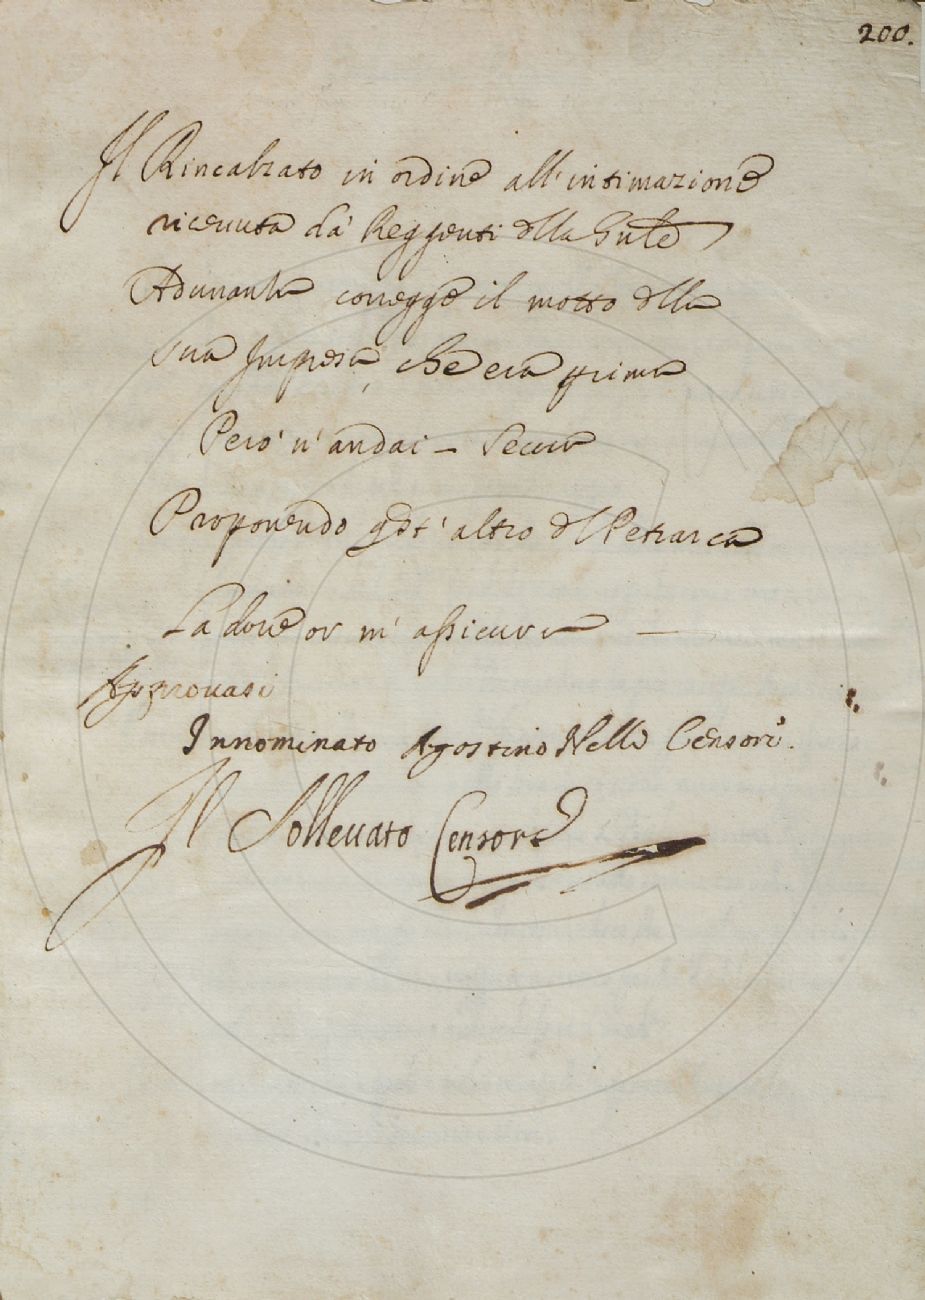 200.
Il Rincalzato in ordine all'intimazione
riceuuta da' Reggenti della
Adunanza corregge il motto della
sua Impresa, che era prima
Però n'andai – Secura
Proponendo altro del Petrarca
La doue or m'assicura —
Approuasi
Innominato Agostino Nelli Censore.
Il Solleuato Censore